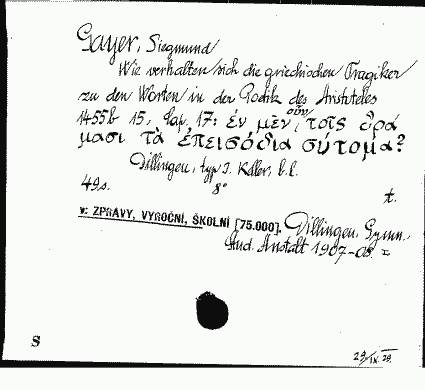 Gayer, Siegmund
Wie verhalten sich die griechischen Tragiker
zu den Worten in der Poetik des Aristoteles
1455b 15, Cap. 17: ἐν μὲν οὖν τοῖς δρά
μασι τὰ ἐπεισόδια σύτομα?
Dillingen, typ J. Keller, b.l.
49s. 8° t.
v: ZPRÁVY, VÝROČNÍ, ŠKOLNÍ [75.000], Dillingen, Gymn.,
Stud. Anstalt 1907-08. I
S
29/IX 28